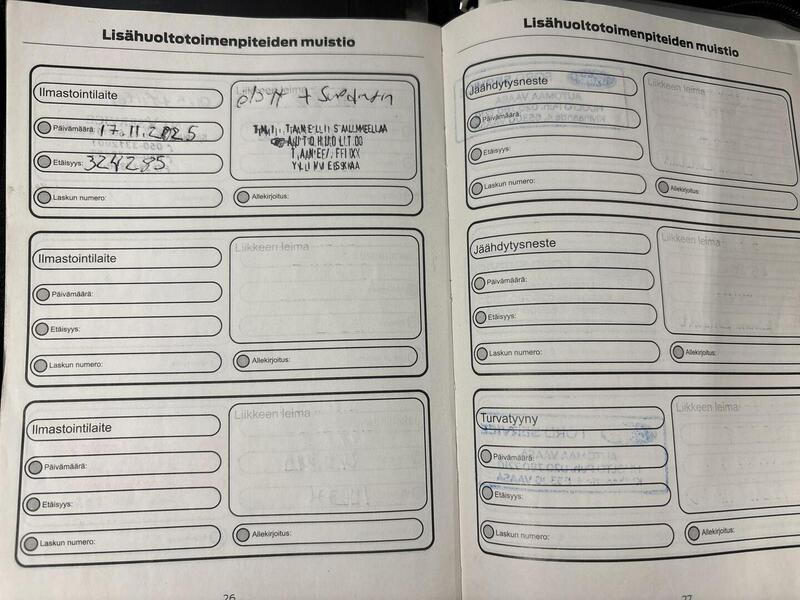 Lisähuoltotoimenpiteiden muistio
Ilmastointilaite
Päivämäärä: 17.11.2025
Etäisyys: 324285
Laskun numero:
Liikkeen leima
Allekirjoitus:
Ilmastointilaite
Päivämäärä:
Etäisyys:
Laskun numero:
Liikkeen leima
Allekirjoitus:
Ilmastointilaite
Päivämäärä:
Etäisyys:
Laskun numero:
Liikkeen leima
Allekirjoitus:
26
Lisähuoltotoimenpiteiden muistio
Jäähdytysneste
Päivämäärä:
Etäisyys:
Laskun numero:
Liikkeen leima
Allekirjoitus:
Jäähdytysneste
Päivämäärä:
Etäisyys:
Laskun numero:
Liikkeen leima
Allekirjoitus:
Turvatyyny
Päivämäärä:
Etäisyys:
Laskun numero:
Liikkeen leima
Allekirjoitus:
27